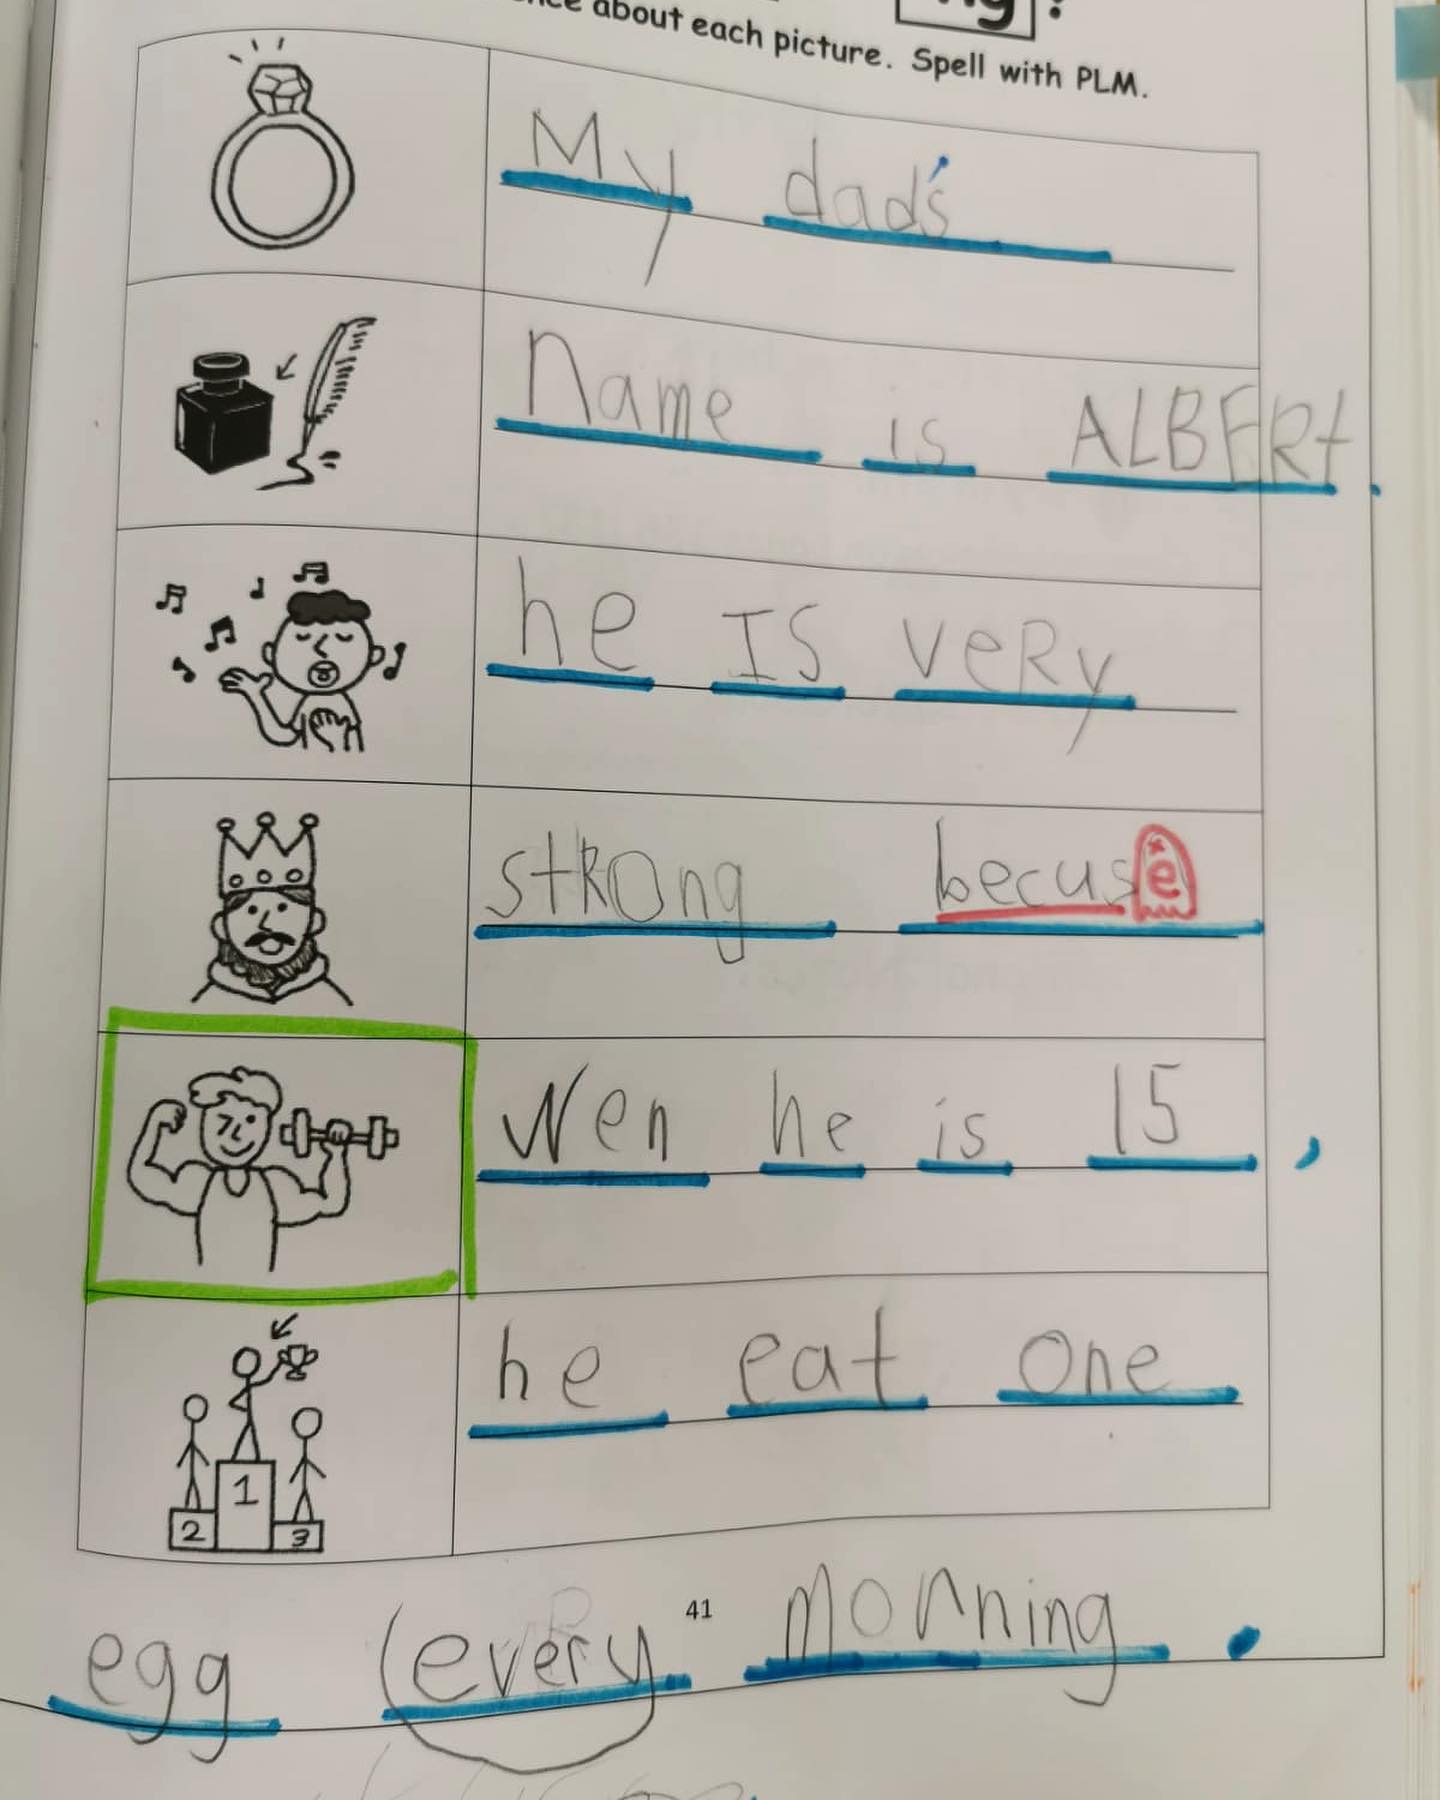 about each picture. Spell with PLM.
My dad's
name is ALBERt.
he IS veRy
stRong becuse
Wen he is 15,
he eat one
1
2 3
41
egg every morning.